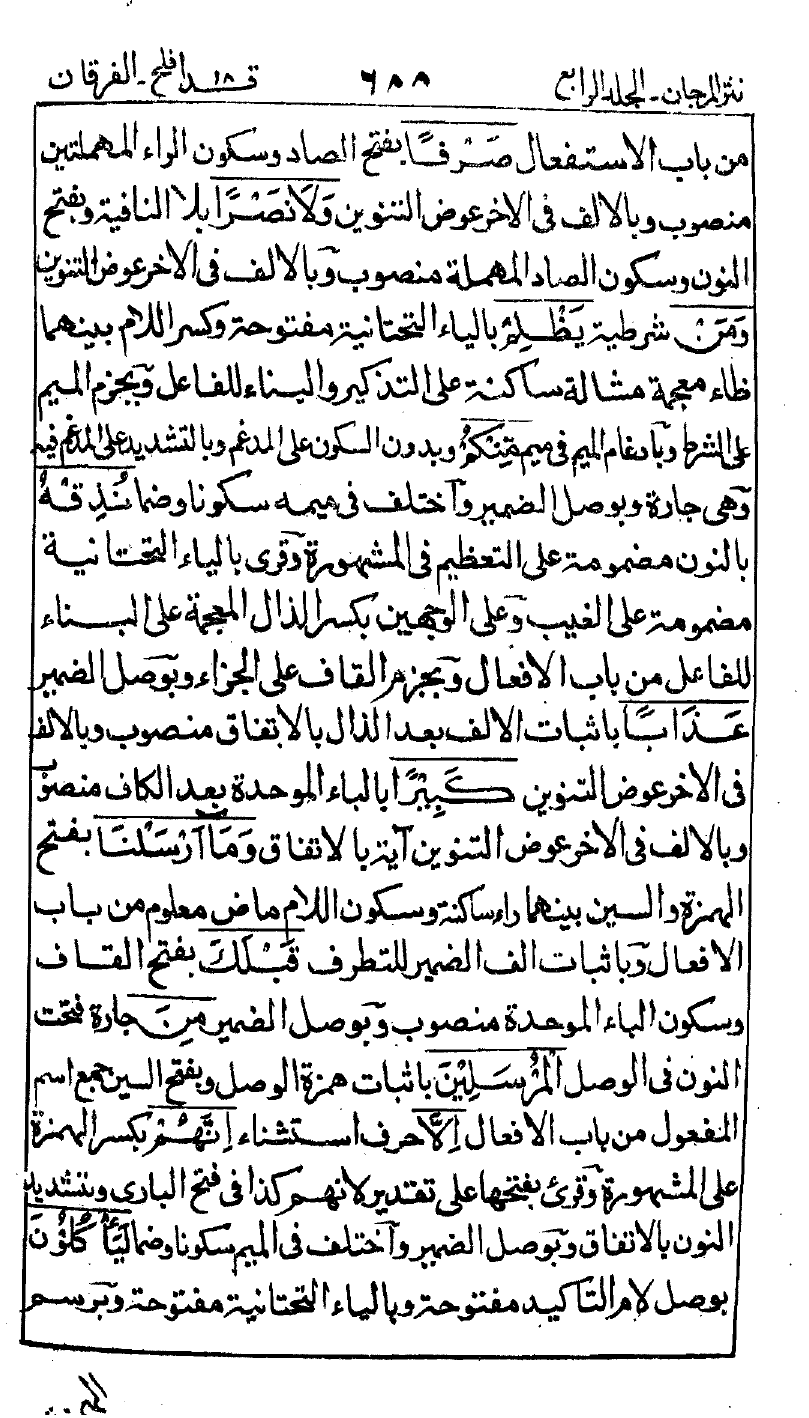 نثر المرجان ـ الجلد الرابع ٦٨٨ قد افلح ١٨ ـ الفرقان
من باب الاستفعال صَرْفًا بفتح الصاد وسكون الراء المهملتين
منصوب وبالالف فى الاخر عوض التنوين وَلَا نَصْرًا بلا النافية وبفتح
النون وسكون الصاد المهملة منصوب وبالالف فى الاخر عوض التنوين
وَمَنْ شرطية يَظْلِمْ بالياء التحتانية مفتوحة وكسر اللام بينهما
ظاء معجمة مشالة ساكنة على التذكير والبناء للفاعل وبجزم الميم
على الشرط وبادغام الميم فى ميم مِّنْكُمْ وبدون السكون على المدغم وبالتشديد على المدغم فيه
وهى جارة وبوصل الضمير واختلف فى ميمه سكونا وضما نُذِقْهُ
بالنون مضمومة على التعظيم فى المشهورة وقرى بالياء التحتانية
مضمومة على الغيب وعلى الوجهين بكسر الذال المعجمة على البناء
للفاعل من باب الافعال وبجزم القاف على الجزاء وبوصل الضمير
عَذَابًا باثبات الالف بعد الذال بالاتفاق منصوب وبالالف
فى الاخر عوض التنوين كَبِيْرًا بالباء الموحدة بعد الكاف منصوب
وبالالف فى الاخر عوض التنوين آية بالاتفاق وَمَا اَرْسَلْنَا بفتح
الهمزة والسين بينهما راء ساكنة وسكون اللام ماض معلوم من باب
الافعال وباثبات الف الضمير للتطرف قَبْلَكَ بفتح القاف
وسكون الباء الموحدة منصوب وبوصل الضمير مِنَ جارة فتحت
النون فى الوصل الْمُرْسَلِيْنَ باثبات همزة الوصل وبفتح السين جمع اسم
المفعول من باب الافعال اِلَّا حرف استثناء اِنَّهُمْ بكسر الهمزة
على المشهورة وقرئ بفتحها على تقدير لانهم كذا فى فتح البارى وبتشديد
النون بالاتفاق وبوصل الضمير واختلف فى الميم سكونا وضما لَيَأْكُلُوْنَ
بوصل لام التأكيد مفتوحة وبالياء التحتانية مفتوحة وبرسم